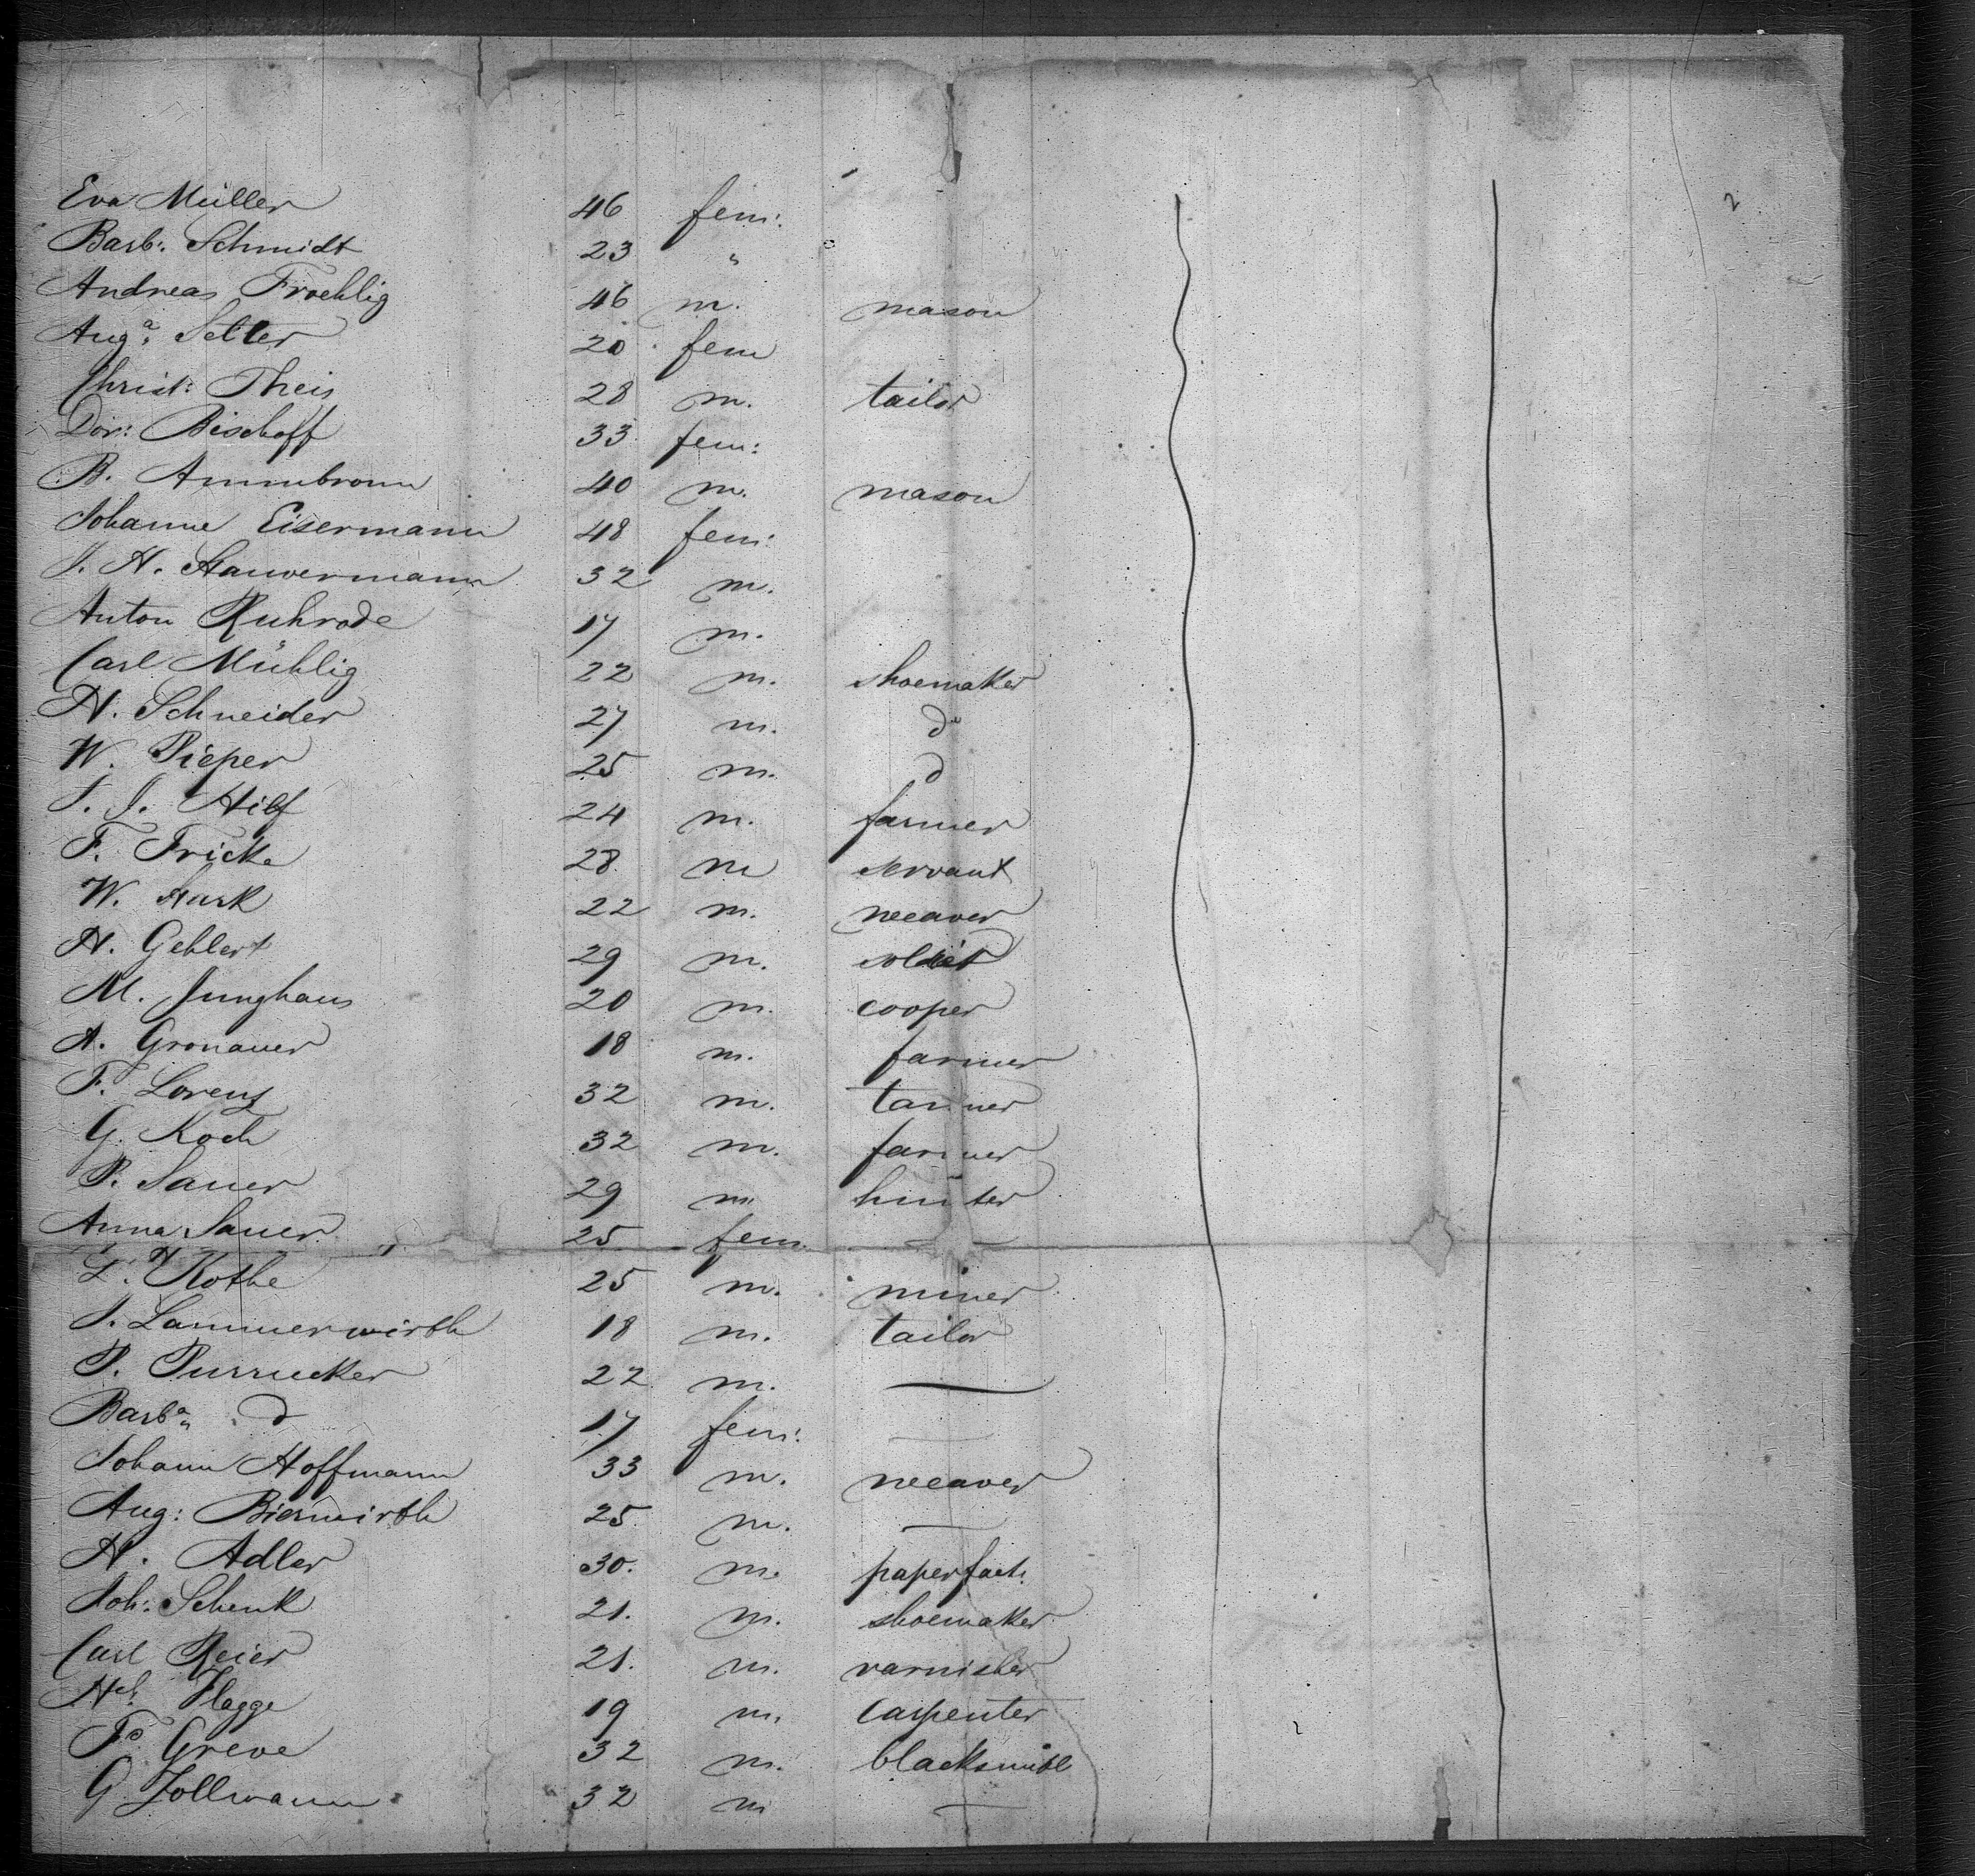 2
Eva Müller 46 fem:
Barb: Schmidt 23 "
Andreas Froehlig 46 m. mason
Augª Selter 20 fem
Christ: Theis 28 m. tailor
Dor: Bischoff 33 fem:
B. Ammbronn 40 m. mason
Johanne Eisermann 48 fem:
J. H. Hauvermann 32 m.
Anton Ruhrode 17 m.
Carl Mühlig 22 m. shoemaker
H. Schneider 27 m. do
W. Pieper 25 m. d
J. J. Hilf 24 m. farmer
F. Fricke 28 m servant
W. Hark 22 m. weaver
H. Gehlert 29 m. soldier
M. Junghans 20 m. cooper
A. Gronauer 18 m. farmer
F. Lorenz 32 m. tanner
G. Koch 32 m. farmer
P. Sauer 29 m hunter
Anna Sauer 25 fem. —
L. H Kothe 25 m. miner
J. Lammerwirth 18 m. tailor
P. Purrucker 22 m. —
Barbª d 17 fem: —
Johann Hoffmann 33 m. weaver
Aug: Bierwirth 25 m. —
H. Adler 30. m. paperfact.
Joh: Schenk 21. m. shoemaker
Carl Reier 21. m. varnisher
Hch Flagge 19 m. carpenter
Fd Greve 32 m. blacksmith
G Zollmann 32 m —